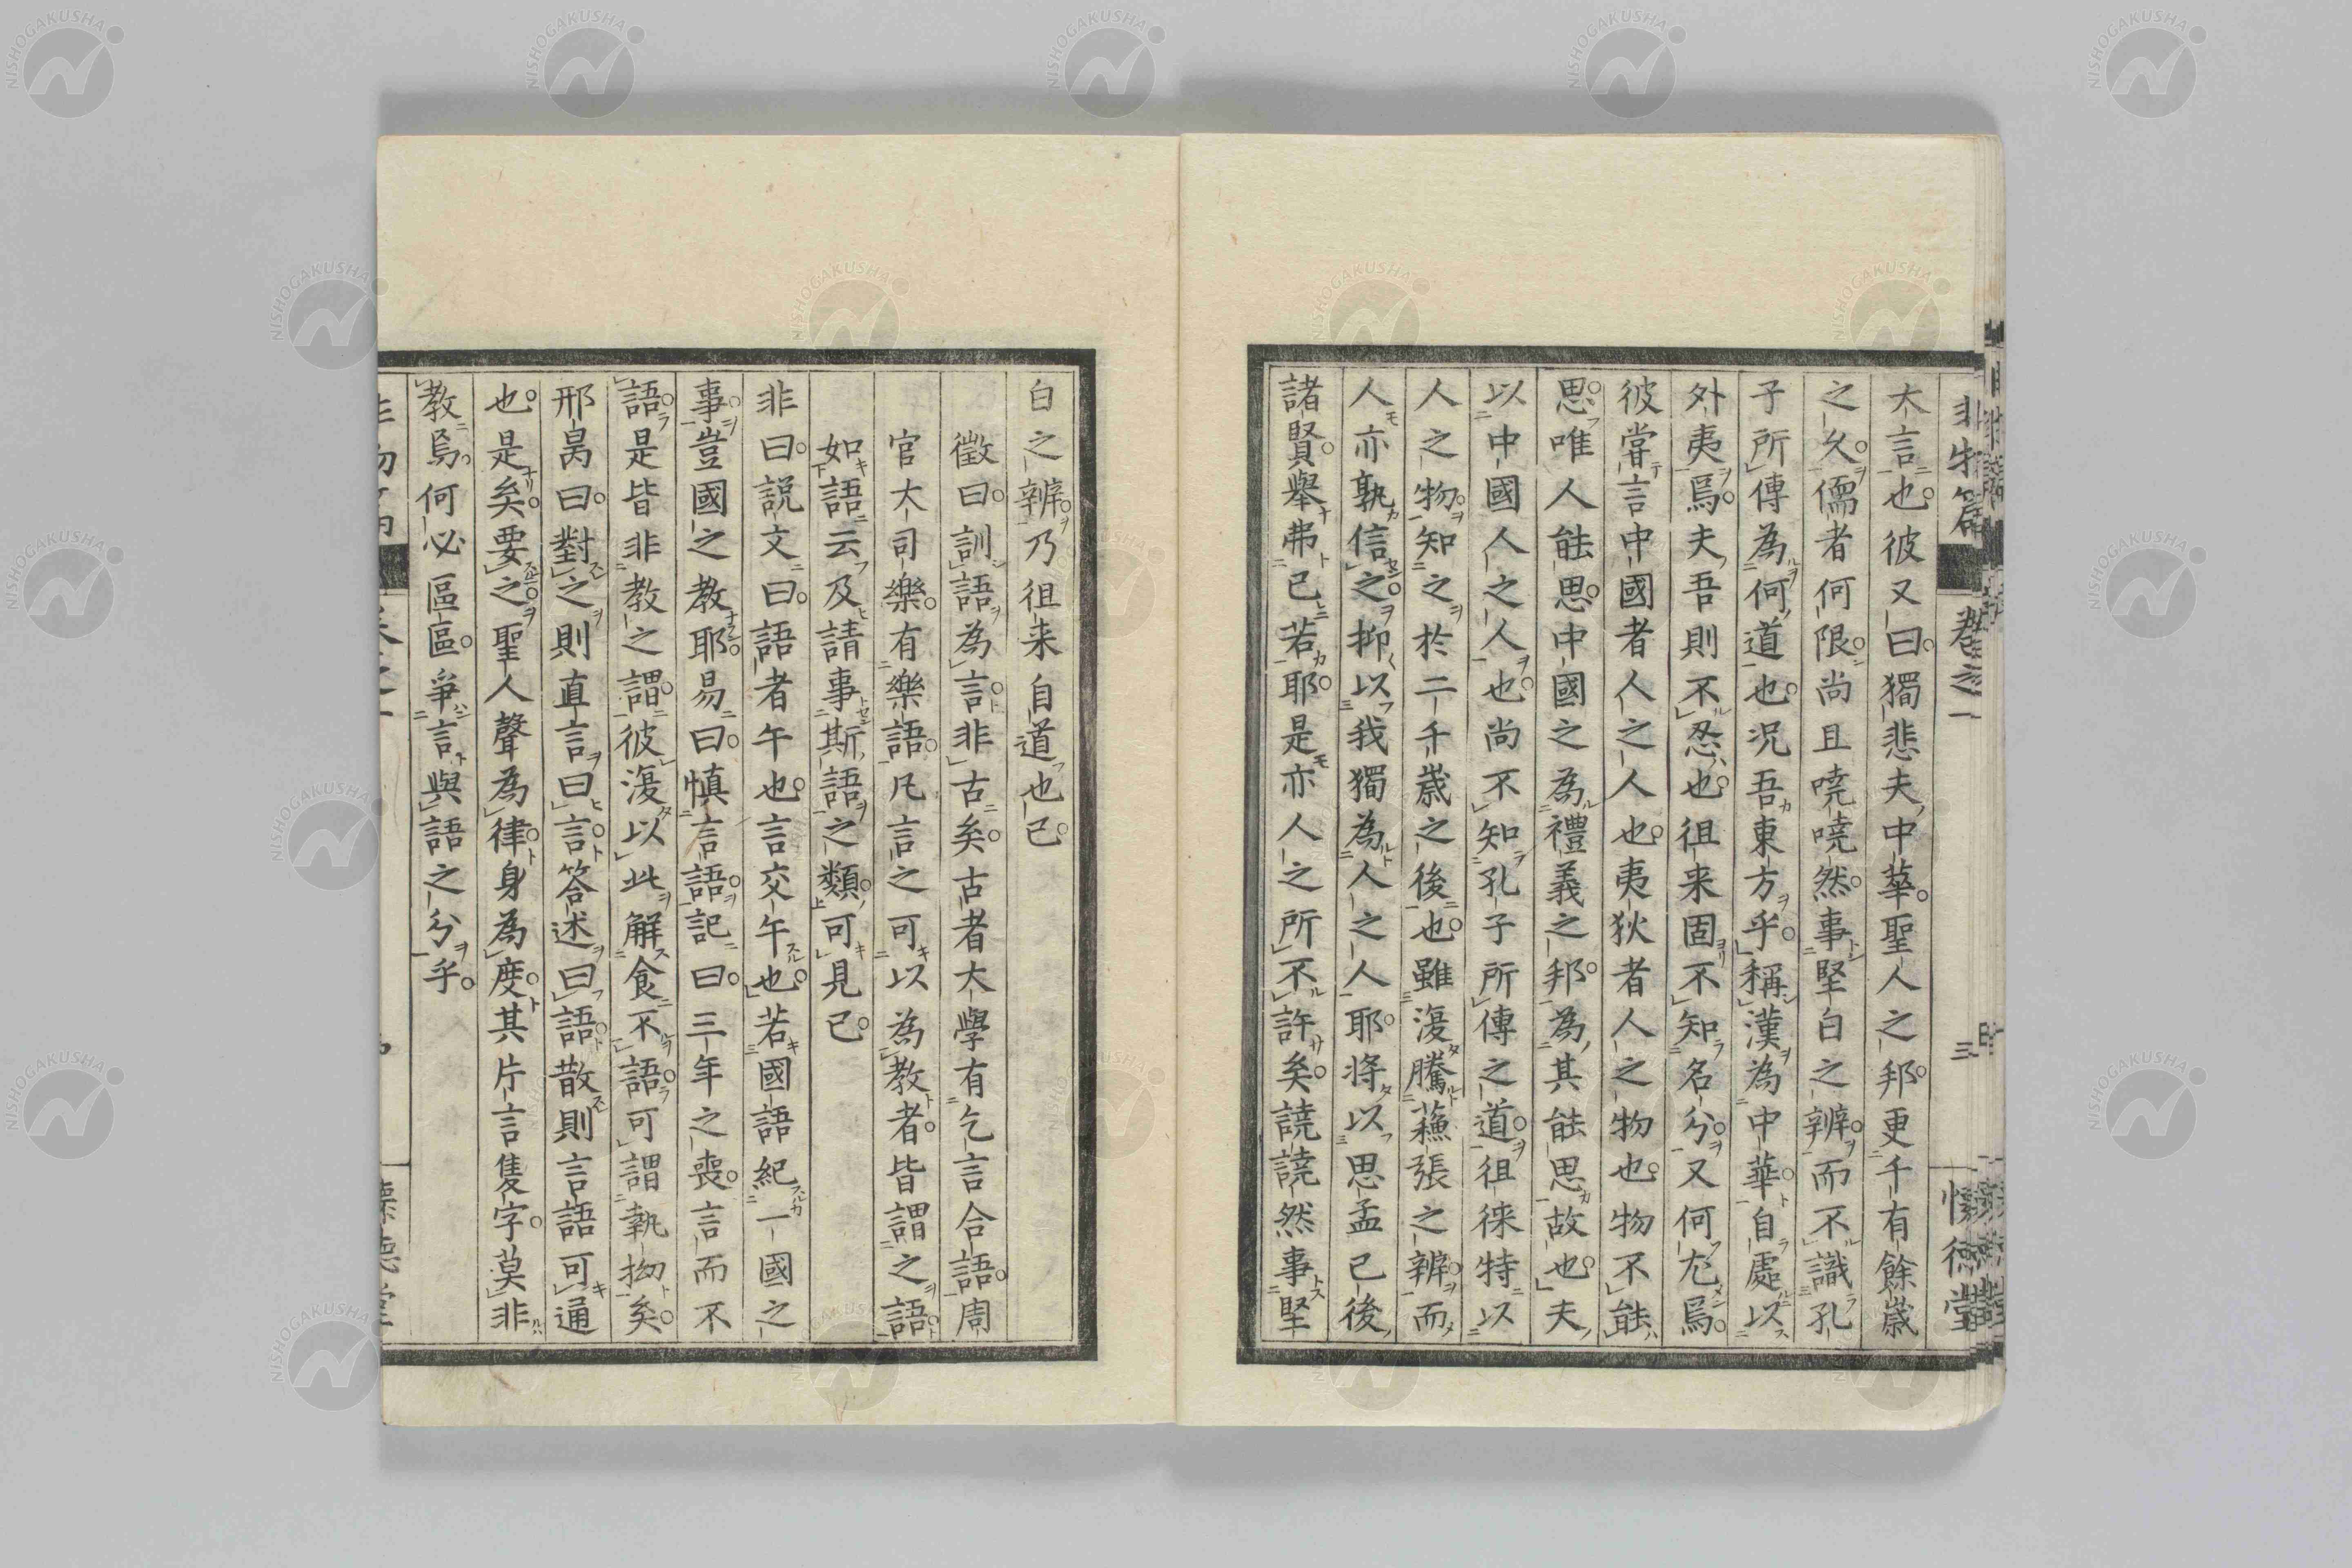 非物篇 卷之一 三 懷德堂
大言也彼又曰獨悲夫中華聖人之邦更千有餘歲
之久儒者何限尚且嘵嘵然事堅白之辨而不識孔
子所傳為何道也况吾東方乎稱漢為中華自處以
外夷焉夫吾則不忍也徂来固不知名分又何尤焉
彼嘗言中國者人之人也夷狄者人之物也物不能
思唯人能思中國之為禮義之邦為其能思故也夫
以中國人之人也尚不知孔子所傳之道徂徠特以
人之物知之於二千歲之後也雖復騰蘓張之辨而
人亦孰信之抑以我獨為人之人耶將以思孟已後
諸賢舉弗已若耶是亦人之所不許矣譊譊然事堅
白之辨乃徂来自道也已
徵曰訓語為言非古矣古者大學有乞言合語周
官大司樂有樂語凡言之可以為教者皆謂之語
如語云及請事斯語之類可見已
非曰說文曰語者午也言交午也若國語紀一國之
事豈國之教耶易曰慎言語記曰三年之喪言而不
語是皆非教之謂彼復以此解食不語可謂執拗矣
邢昺曰對之則直言曰言答述曰語散則言語可通
也是矣要之聖人聲為律身為度其片言隻字莫非
教焉何必區區爭言與語之分乎